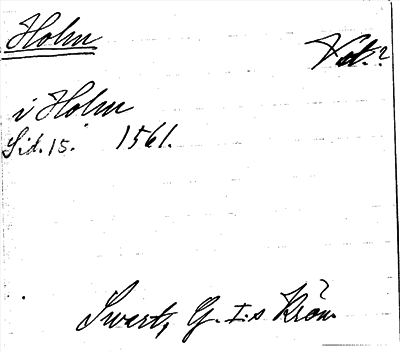 Holm
Vd.?
i Holm
Sid. 15. 1561.
Swart, G. I:s Krön.